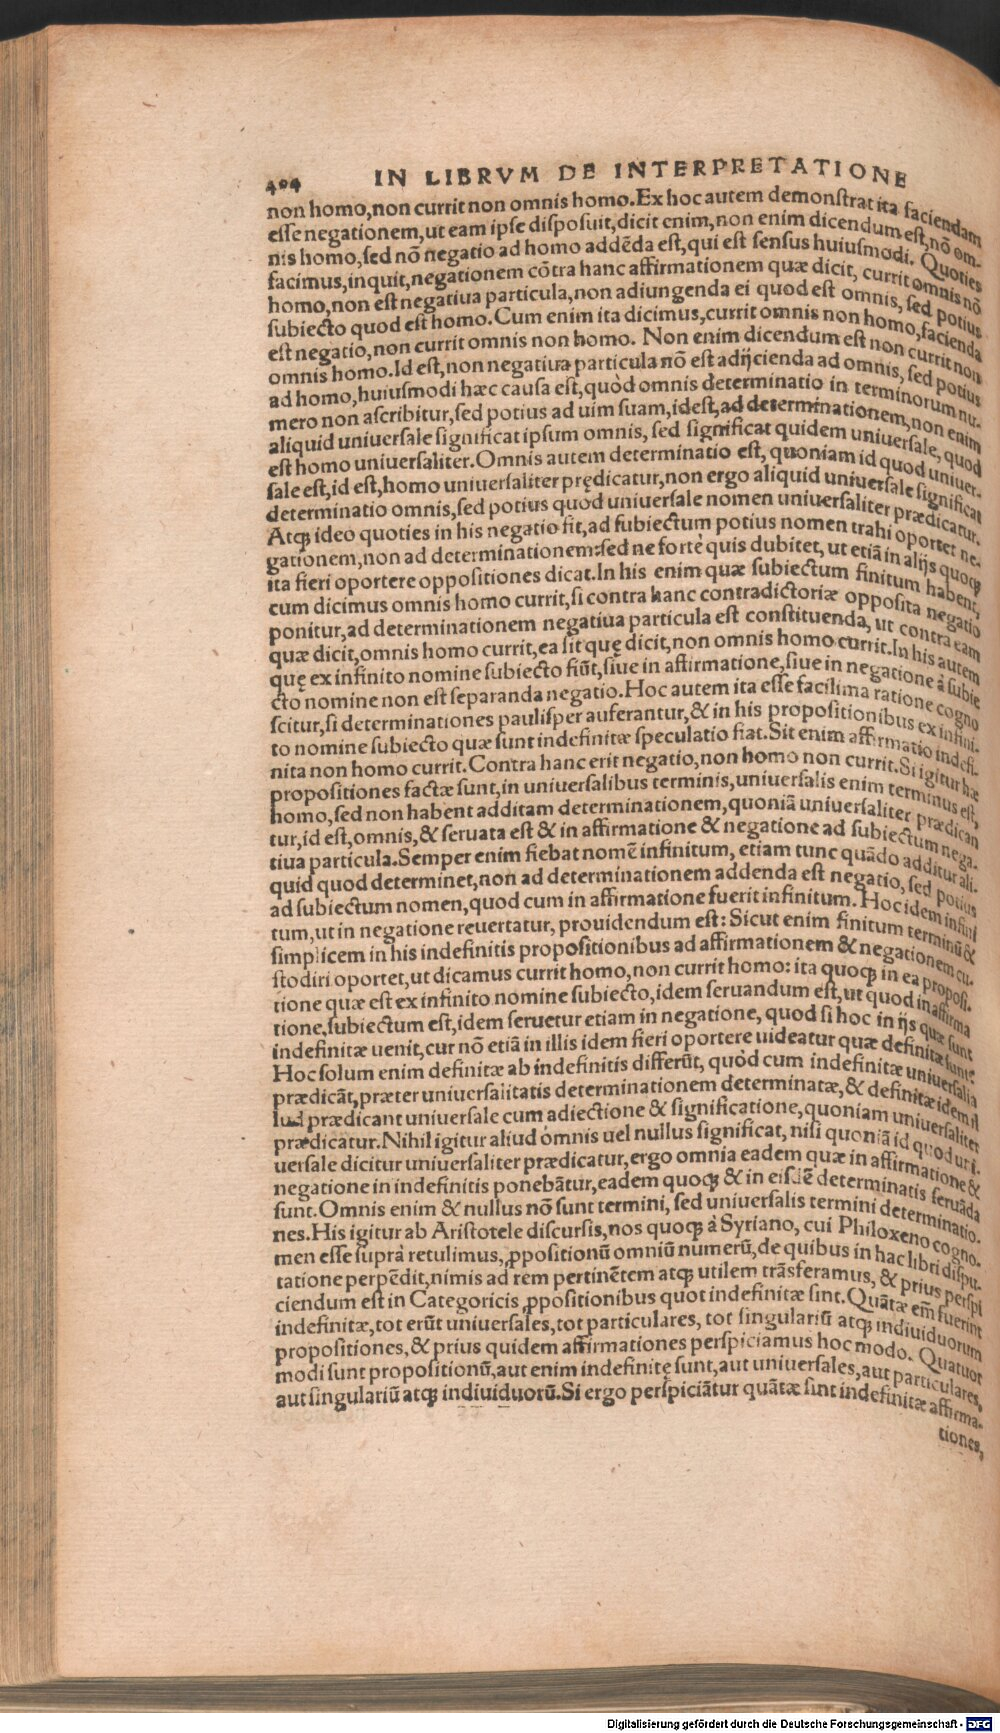 404 IN LIBRVM DE INTERPRETATIONE
non homo,non currit non omnis homo.Ex hoc autem demonſtrat ita faciendam
eſſe negationem,ut eam ipſe diſpoſuit,dicit enim,non enim dicendum eſt,nõ om-
nis homo,ſed nõ negatio ad homo addẽda eſt,qui eſt ſenſus huiuſmodi. Quoties
facimus,inquit,negationem cõtra hanc affirmationem quæ dicit, currit omnis nõ
homo,non eſt negatiua particula,non adiungenda ei quod eſt omnis, ſed potius
ſubiecto quod eſt homo.Cum enim ita dicimus,currit omnis non homo,facienda
eſt negatio,non currit omnis non homo. Non enim dicendum eſt non currit non
omnis homo.Id eſt,non negatiua particula nõ eſt adijcienda ad omnis, ſed potius
ad homo,huiuſmodi hæc cauſa eſt,quòd omnis determinatio in terminorum nu-
mero non aſcribitur,ſed potius ad uim ſuam,ideſt,ad determinationem,non enim
aliquid uniuerſale ſignificat ipſum omnis, ſed ſignificat quidem uniuerſale, quod
eſt homo uniuerſaliter.Omnis autem determinatio eſt, quoniam id quod uniuer-
ſale eſt,id eſt,homo uniuerſaliter prędicatur,non ergo aliquid uniuerſale ſignificat
determinatio omnis,ſed potius quod uniuerſale nomen uniuerſaliter prædicatur.
Atqꝫ ideo quoties in his negatio fit,ad ſubiectum potius nomen trahi oportet ne-
gationem,non ad determinationem:ſed ne fortè quis dubitet, ut etiã in alijs quoqꝫ
ita fieri oportere oppoſitiones dicat.In his enim quæ ſubiectum finitum habent,
cum dicimus omnis homo currit,ſi contra hanc contradictoriæ oppoſita negatio
ponitur,ad determinationem negatiua particula eſt conſtituenda, ut contra eam
quæ dicit,omnis homo currit,ea ſit quę dicit,non omnis homo currit.In his autem
quę ex infinito nomine ſubiecto fiũt,ſiue in affirmatione,ſiue in negatione à ſubie
cto nomine non eſt ſeparanda negatio.Hoc autem ita eſſe facilima ratione cogno
ſcitur,ſi determinationes pauliſper auferantur,& in his propoſitionibus ex infini-
to nomine ſubiecto quæ ſunt indefinitæ ſpeculatio fiat.Sit enim affirmatio indefi-
nita non homo currit.Contra hanc erit negatio,non homo non currit.Si igitur hæ
propoſitiones factæ ſunt,in uniuerſalibus terminis,uniuerſalis enim terminus eſt,
homo,ſed non habent additam determinationem,quoniã uniuerſaliter prædican
tur,id eſt,omnis,& ſeruata eſt & in affirmatione & negatione ad ſubiectum nega-
tiua particula.Semper enim fiebat nomẽ infinitum, etiam tunc quãdo additur ali-
quid quod determinet,non ad determinationem addenda eſt negatio, ſed potius
ad ſubiectum nomen,quod cum in affirmatione fuerit infinitum. Hoc idem infini
tum,ut in negatione reuertatur, prouidendum eſt: Sicut enim finitum terminũ &
ſimplicem in his indefinitis propoſitionibus ad affirmationem & negationem cu-
ſtodiri oportet,ut dicamus currit homo,non currit homo: ita quoqꝫ in ea propoſi-
tione quæ eſt ex infinito nomine ſubiecto,idem ſeruandum eſt,ut quod in affirma
tione,ſubiectum eſt,idem ſeruetur etiam in negatione, quod ſi hoc in ijs quæ ſunt
indefinitæ uenit,cur nõ etiã in illis idem fieri oportere uideatur quæ definitæ ſunt?
Hoc ſolum enim definitæ ab indefinitis differũt, quòd cum indefinitæ uniuerſalia
prædicãt,præter uniuerſalitatis determinationem determinatæ, & definitæ idem il
lud prædicant uniuerſale cum adiectione & ſignificatione,quoniam uniuerſaliter
prædicatur.Nihil igitur aliud omnis uel nullus ſignificat, niſi quoniã id quod uni-
uerſale dicitur uniuerſaliter prædicatur,ergo omnia eadem quæ in affirmatione &
negatione in indefinitis ponebãtur,eadem quoqꝫ & in eiſdẽ determinatis ſeruãda
ſunt.Omnis enim & nullus nõ ſunt termini, ſed uniuerſalis termini determinatio-
nes.His igitur ab Ariſtotele diſcurſis,nos quoqꝫ à Syriano, cui Philoxeno cogno-
men eſſe ſuprà retulimus,ꝓpoſitionũ omniũ numerũ,de quibus in hac libri diſpu-
tatione perpẽdit,nimis ad rem pertinẽtem atqꝫ utilem trãsferamus, & prius perſpi
ciendum eſt in Categoricis ꝓpoſitionibus quot indefinitæ ſint.Quãtæ em̃ fuerint
indefinitæ,tot erũt uniuerſales,tot particulares, tot ſingulariũ atqꝫ indiuiduorum
propoſitiones,& prius quidem affirmationes perſpiciamus hoc modo. Quatuor
modi ſunt propoſitionũ,aut enim indefinitę ſunt,aut uniuerſales,aut particulares,
aut ſingulariũ atqꝫ indiuiduorũ.Si ergo perſpiciãtur quãtæ ſint indefinitæ affirma-
tiones,
Digitalisierung gefördert durch die Deutsche Forschungsgemeinschaft - DFG